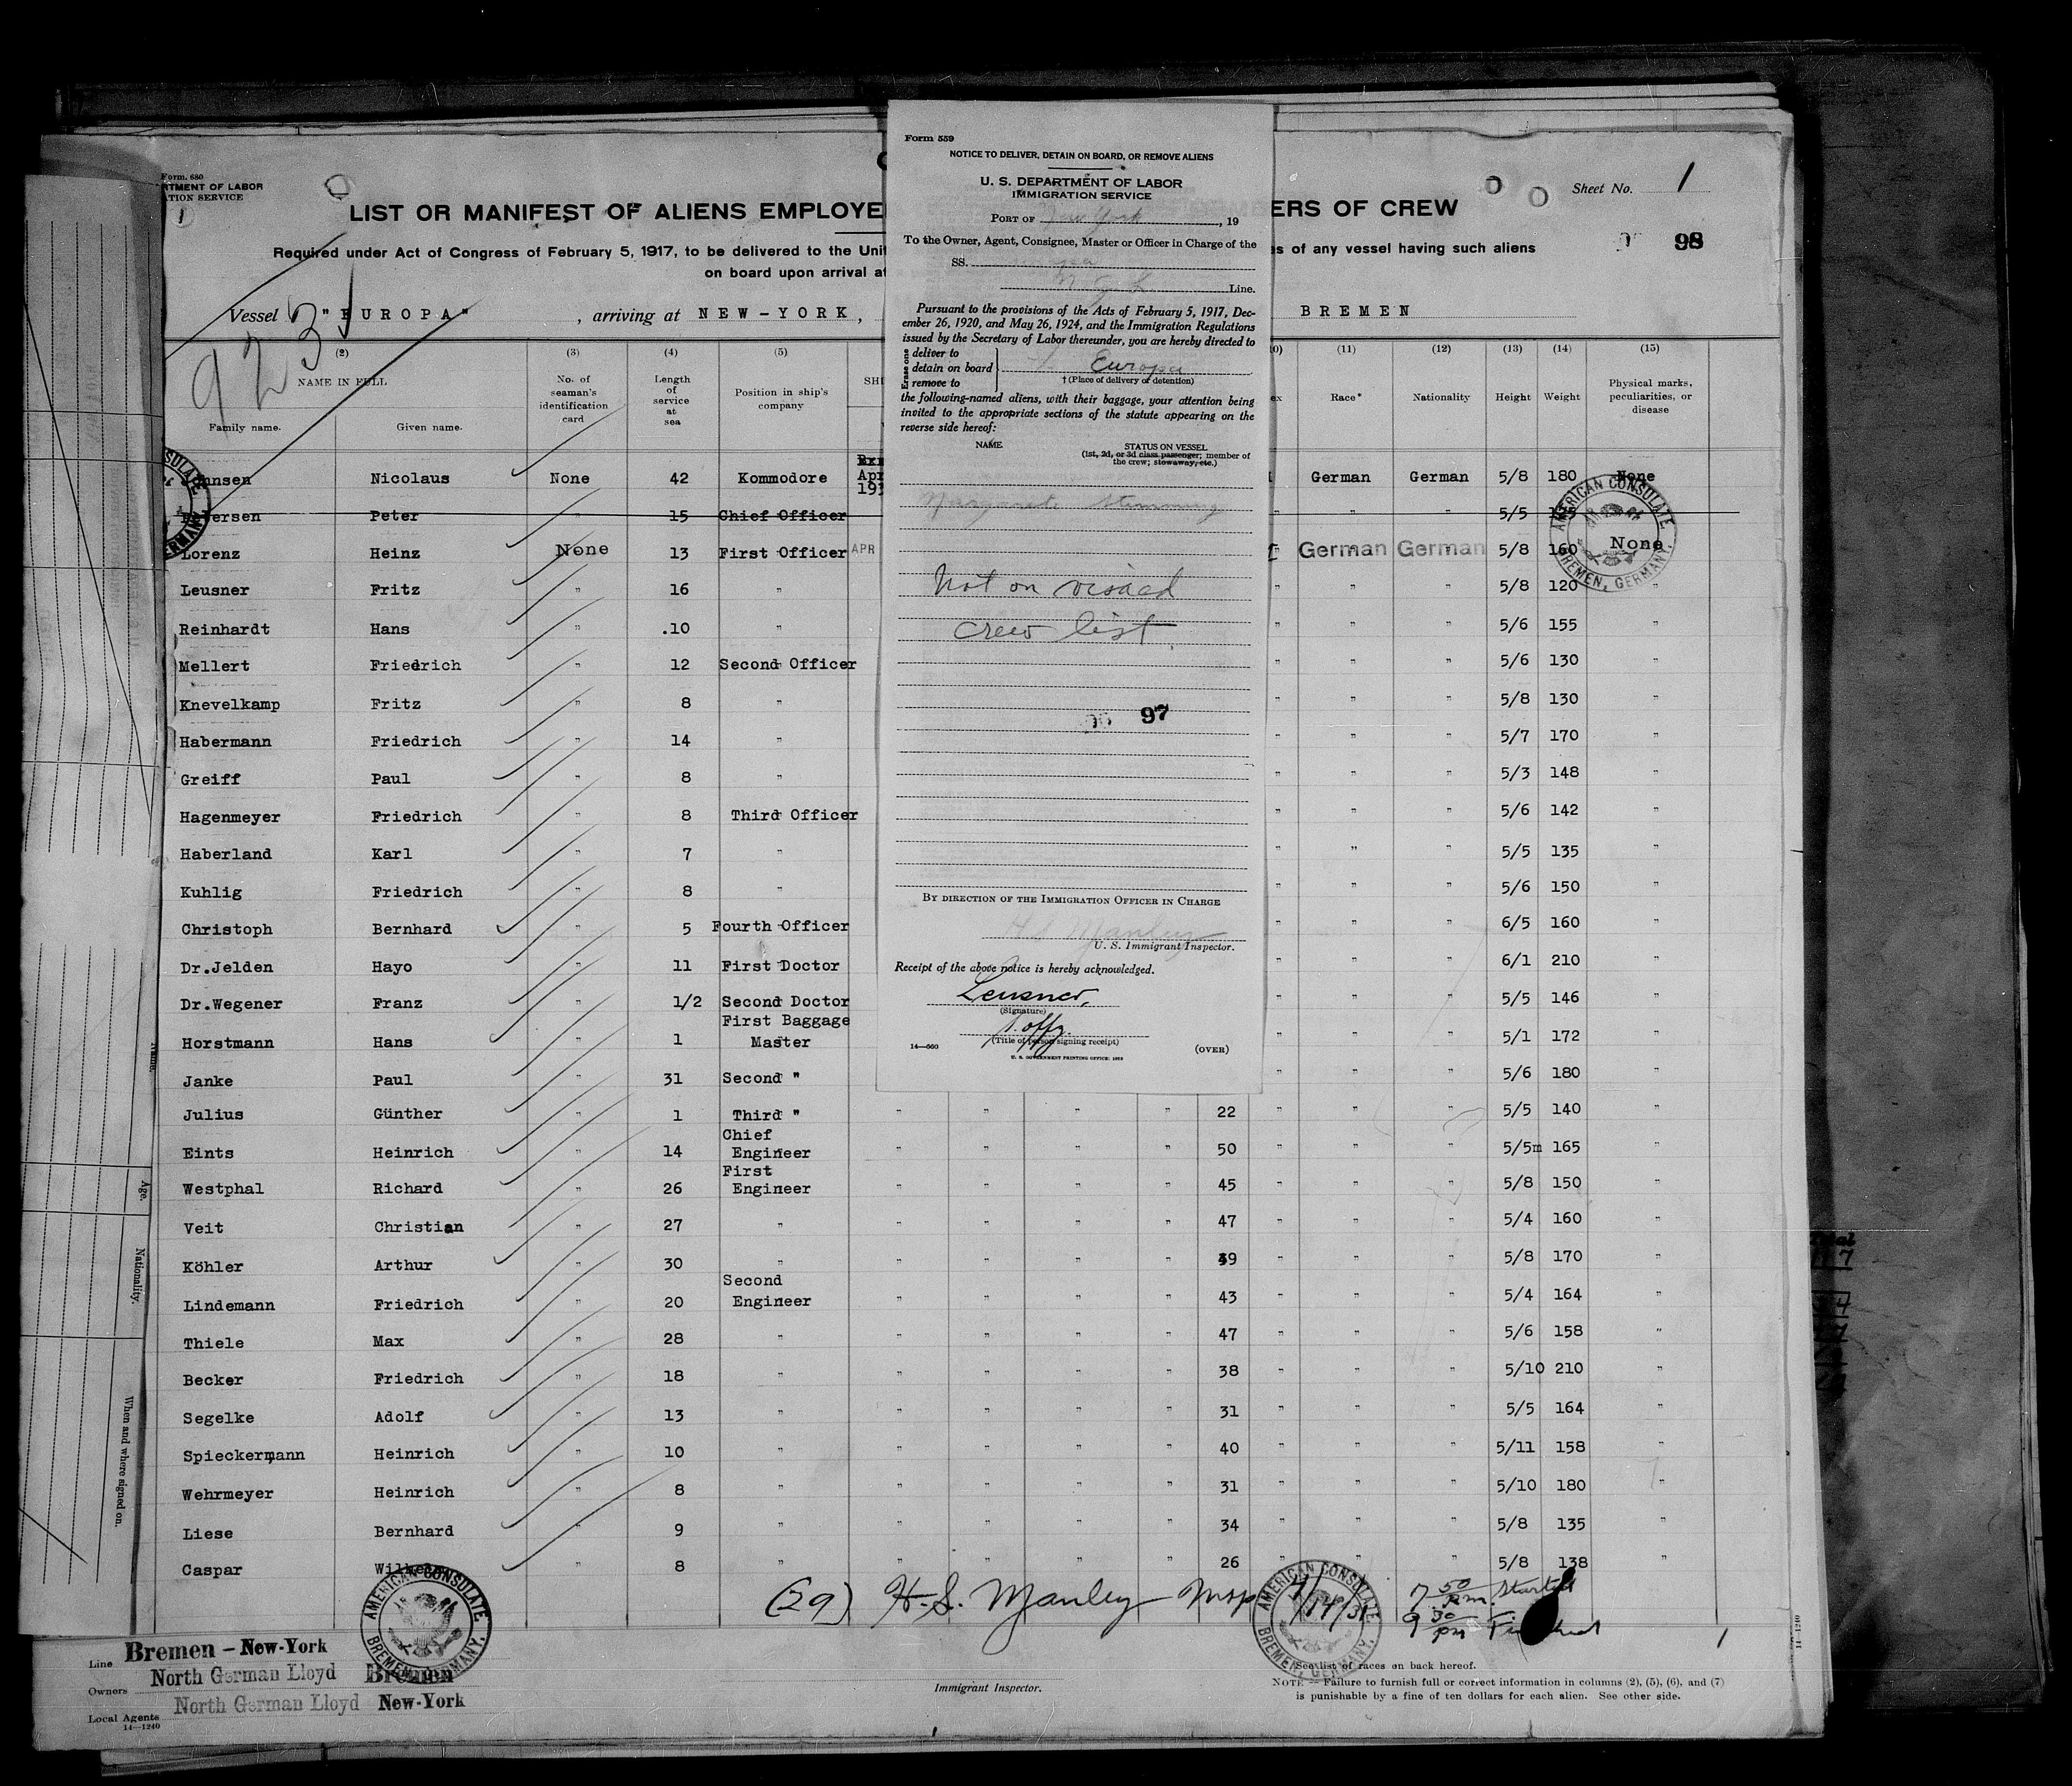 Form 559
NOTICE TO DELIVER, DETAIN ON BOARD, OR REMOVE ALIENS
U. S. DEPARTMENT OF LABOR
IMMIGRATION SERVICE
PORT OF New York, 19
To the Owner, Agent, Consignee, Master or Officer in Charge of the
SS. Europa
N. G. L. Line.
Pursuant to the provisions of the Acts of February 5, 1917, Dec-
ember 26, 1920, and May 26, 1924, and the Immigration Regulations
issued by the Secretary of Labor thereunder, you are hereby directed to
Erase one
deliver to
detain on board
remove to
Europa
† (Place of delivery of detention)
the following-named aliens, with their baggage, your attention being
invited to the appropriate sections of the statute appearing on the
reverse side hereof:
NAME STATUS ON VESSEL
(1st, 2d, or 3d class passenger; member of
the crew; stowaway, etc.)
Margarete Stemming
Not on visaed
crew list
97
BY DIRECTION OF THE IMMIGRATION OFFICER IN CHARGE
H S Manley
U. S. Immigrant Inspector.
Receipt of the above notice is hereby acknowledged.
Leusner,
(Signature)
I. offz.
(Title of person signing receipt)
14—560 (OVER)
U. S. GOVERNMENT PRINTING OFFICE: 1928
Form. 680
RTMENT OF LABOR
TION SERVICE
1
Sheet No. 1
98
LIST OR MANIFEST OF ALIENS EMPLOYE ERS OF CREW
Required under Act of Congress of February 5, 1917, to be delivered to the Unit es of any vessel having such aliens
on board upon arrival at
Vessel "EUROPA", arriving at NEW-YORK, BREMEN
923
(2) (3) (4) (5) (11) (12) (13) (14) (15)
NAME IN FULL
Family name. Given name.
No. of seaman's identification card
Length of service at sea
Position in ship's company
Race* Nationality Height Weight
Physical marks, peculiarities, or disease
Johnsen Nicolaus None 42 Kommodore German German 5/8 180 None
Petersen Peter " 15 Chief Officer " " 5/5
Lorenz Heinz None 13 First Officer APR German German 5/8 160 None
Leusner Fritz " 16 " " " " 5/8 120 "
Reinhardt Hans " .10 " " " " 5/6 155 "
Mellert Friedrich " 12 Second Officer " " " 5/6 130 "
Knevelkamp Fritz " 8 " " " " 5/8 130 "
Habermann Friedrich " 14 " " " " 5/7 170 "
Greiff Paul " 8 " " " " 5/3 148 "
Hagenmeyer Friedrich " 8 Third Officer " " " 5/6 142 "
Haberland Karl " 7 " " " " 5/5 135 "
Kuhlig Friedrich " 8 " " " " 5/6 150 "
Christoph Bernhard " 5 Fourth Officer " " " 6/5 160 "
Dr.Jelden Hayo " 11 First Doctor " " " 6/1 210 "
Dr.Wegener Franz " 1/2 Second Doctor " " " 5/5 146 "
Horstmann Hans " 1 First Baggage Master " " " 5/1 172 "
Janke Paul " 31 Second " " " " 5/6 180 "
Julius Günther " 1 Third " " " " " 22 " " " 5/5 140 "
Eints Heinrich " 14 Chief Engineer " " " " 50 " " " 5/5m 165 "
Westphal Richard " 26 First Engineer " " " " 45 " " " 5/8 150 "
Veit Christian " 27 " " " " " 47 " " " 5/4 160 "
Köhler Arthur " 30 " " " " " 39 " " " 5/8 170 "
Lindemann Friedrich " 20 Second Engineer " " " " 43 " " " 5/4 164 "
Thiele Max " 28 " " " " " 47 " " " 5/6 158 "
Becker Friedrich " 18 " " " " " 38 " " " 5/10 210 "
Segelke Adolf " 13 " " " " " 31 " " " 5/5 164 "
Spieckermann Heinrich " 10 " " " " " 40 " " " 5/11 158 "
Wehrmeyer Heinrich " 8 " " " " " 31 " " " 5/10 180 "
Liese Bernhard " 9 " " " " " 34 " " " 5/8 135 "
Caspar Wilhelm " 8 " " " " " 26 " " " 5/8 138 "
(29) H. S. Manley Insp 4/14/31 7 50 p.m. Started
9 30 pm Finished
1
AMERICAN CONSULATE
BREMEN, GERMANY.
Line Bremen – New-York
Owners North German Lloyd Bremen
Local Agents North German Lloyd New-York
14—1240
Immigrant Inspector.
See list of races on back hereof.
NOTE.—Failure to furnish full or correct information in columns (2), (5), (6), and (7)
is punishable by a fine of ten dollars for each alien. See other side.
14—1240
Name.
Age.
Nationality.
When and where signed on.